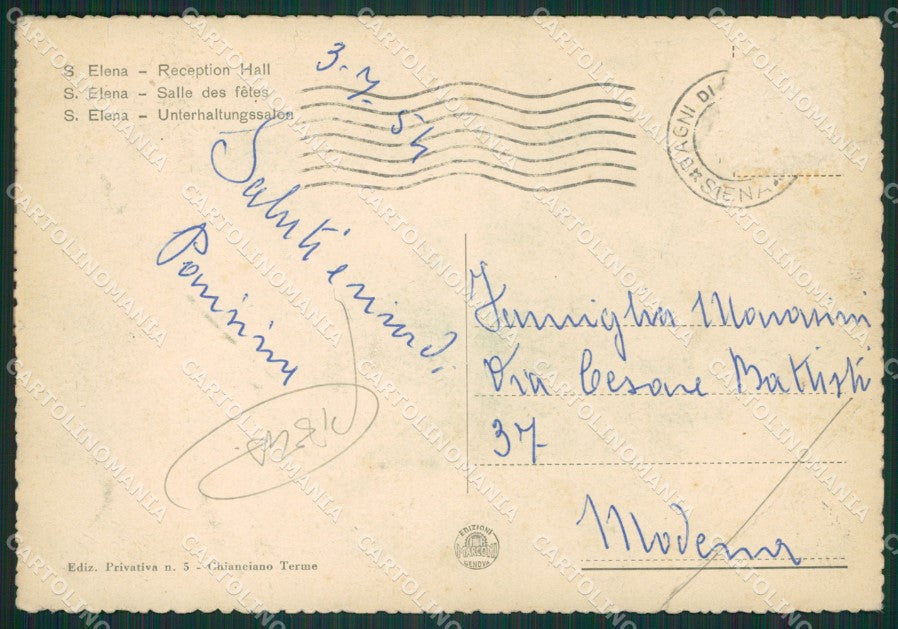 S. Elena - Reception Hall
S. Elena - Salle des fêtes
S. Elena - Unterhaltungssalon
3-7-54
BAGNI DI
* SIENA *
Saluti e
Famiglia Marasini
Via Cesare Battisti
37
Modena
EDIZIONI
GENOVA
Ediz. Privativa n. 5 - Chianciano Terme
CARTOLINOMANIA